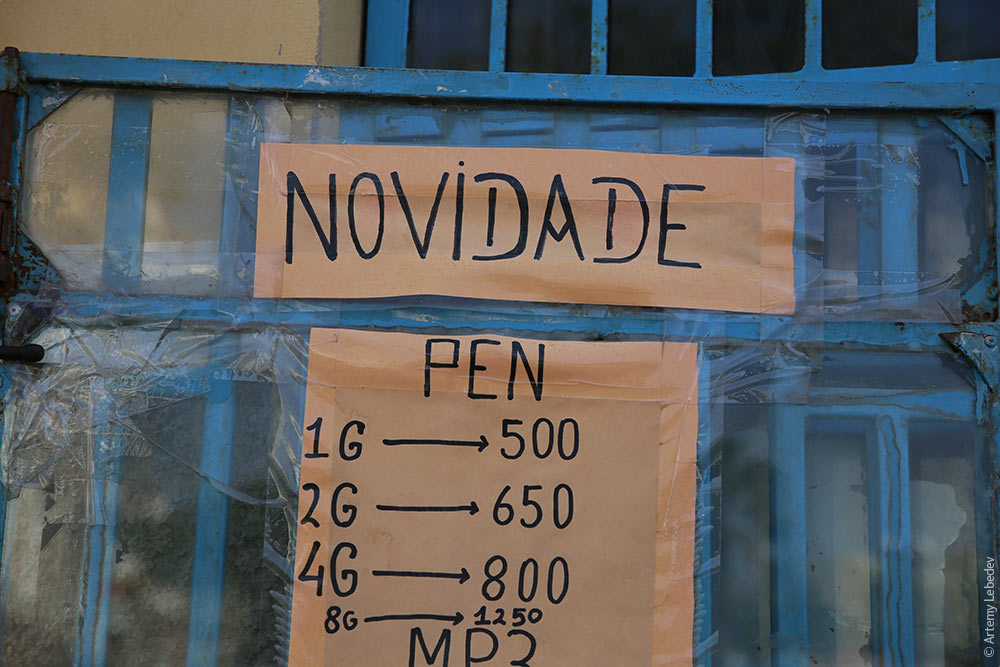 NOViDADE
PEN
1G → 500
2G → 650
4G → 800
8G → 1250
MP3
© Artemy Lebedev